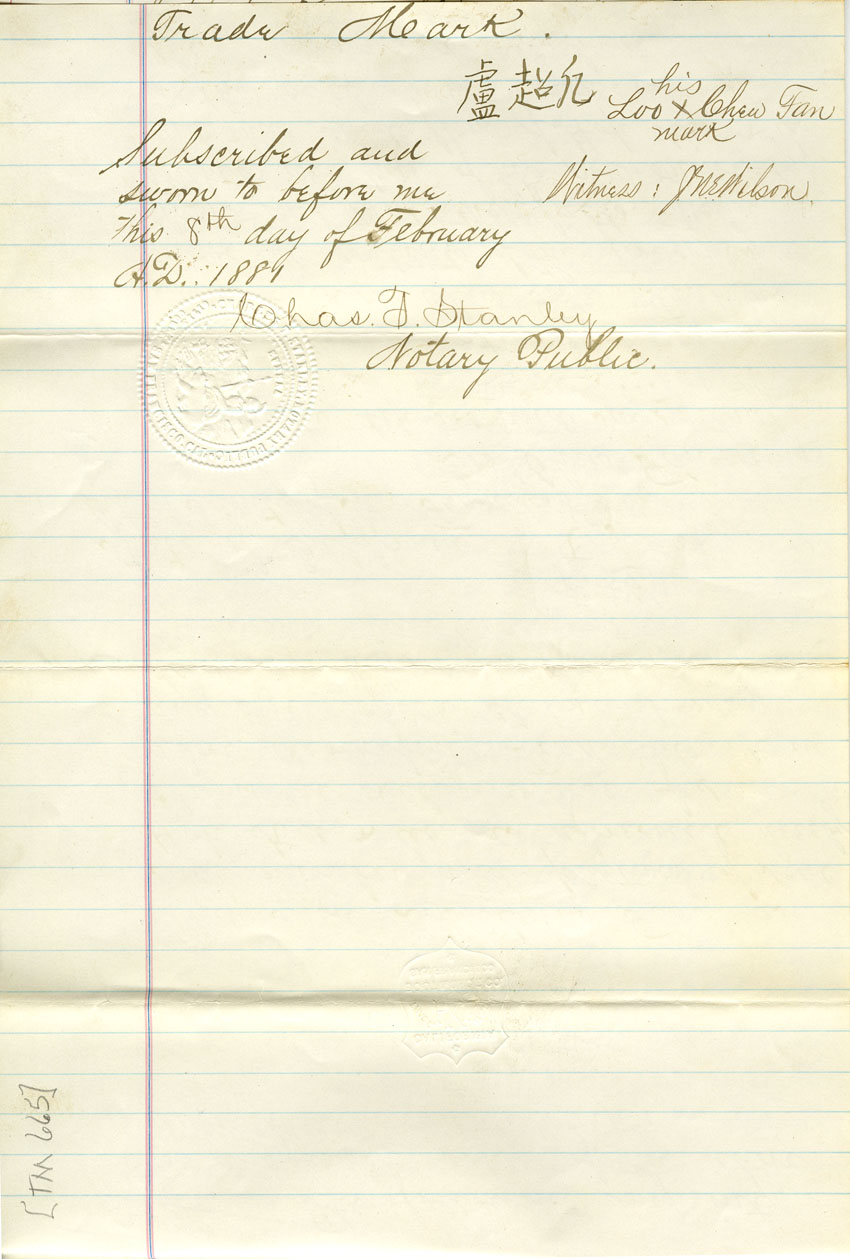 Trade Mark.
盧超
his
Loo X Chew Fan
mark
Subscribed and
sworn to before me
Witness: J.M.Wilson.
this 8th day of February
A.D. 1881
Chas. T. Stanley
Notary Public.
[TM 665]